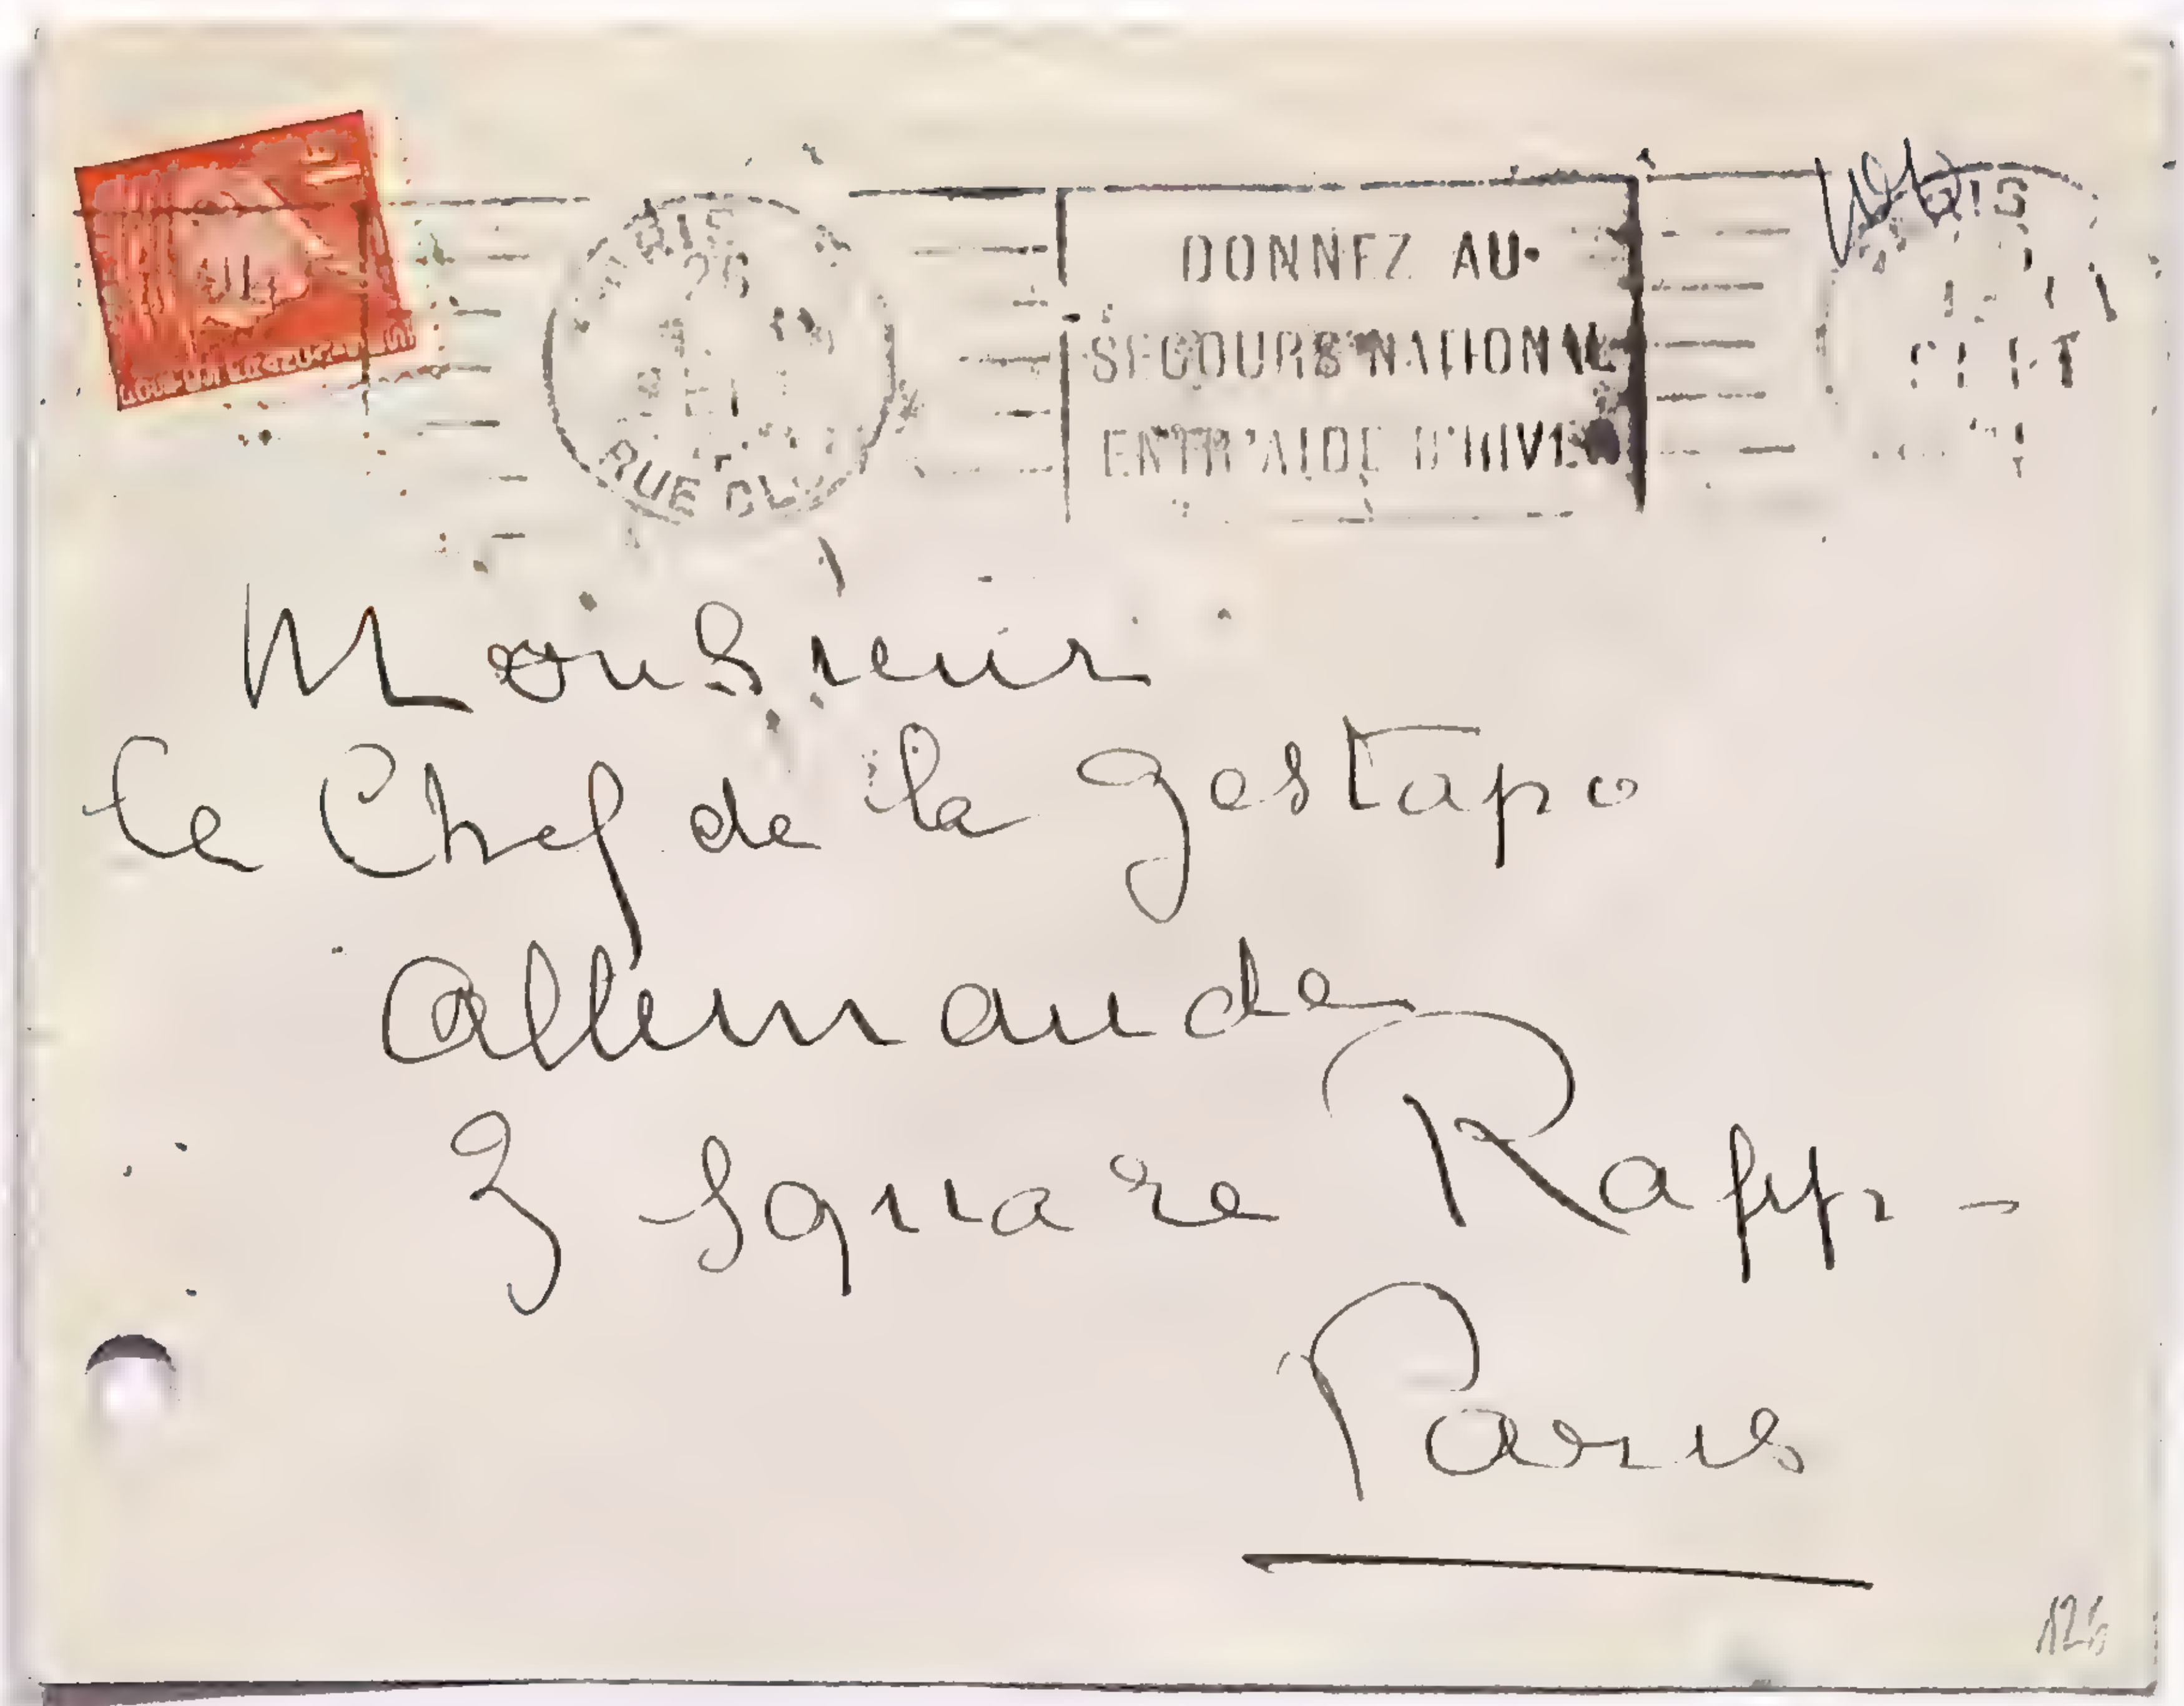 DONNEZ AU
SECOURS NATIONAL
ENTR'AIDE D'HIVE
RUE CL
Monsieur
le Chef de la Gestapo
Allemande
3 Square Rapp -
Paris
126